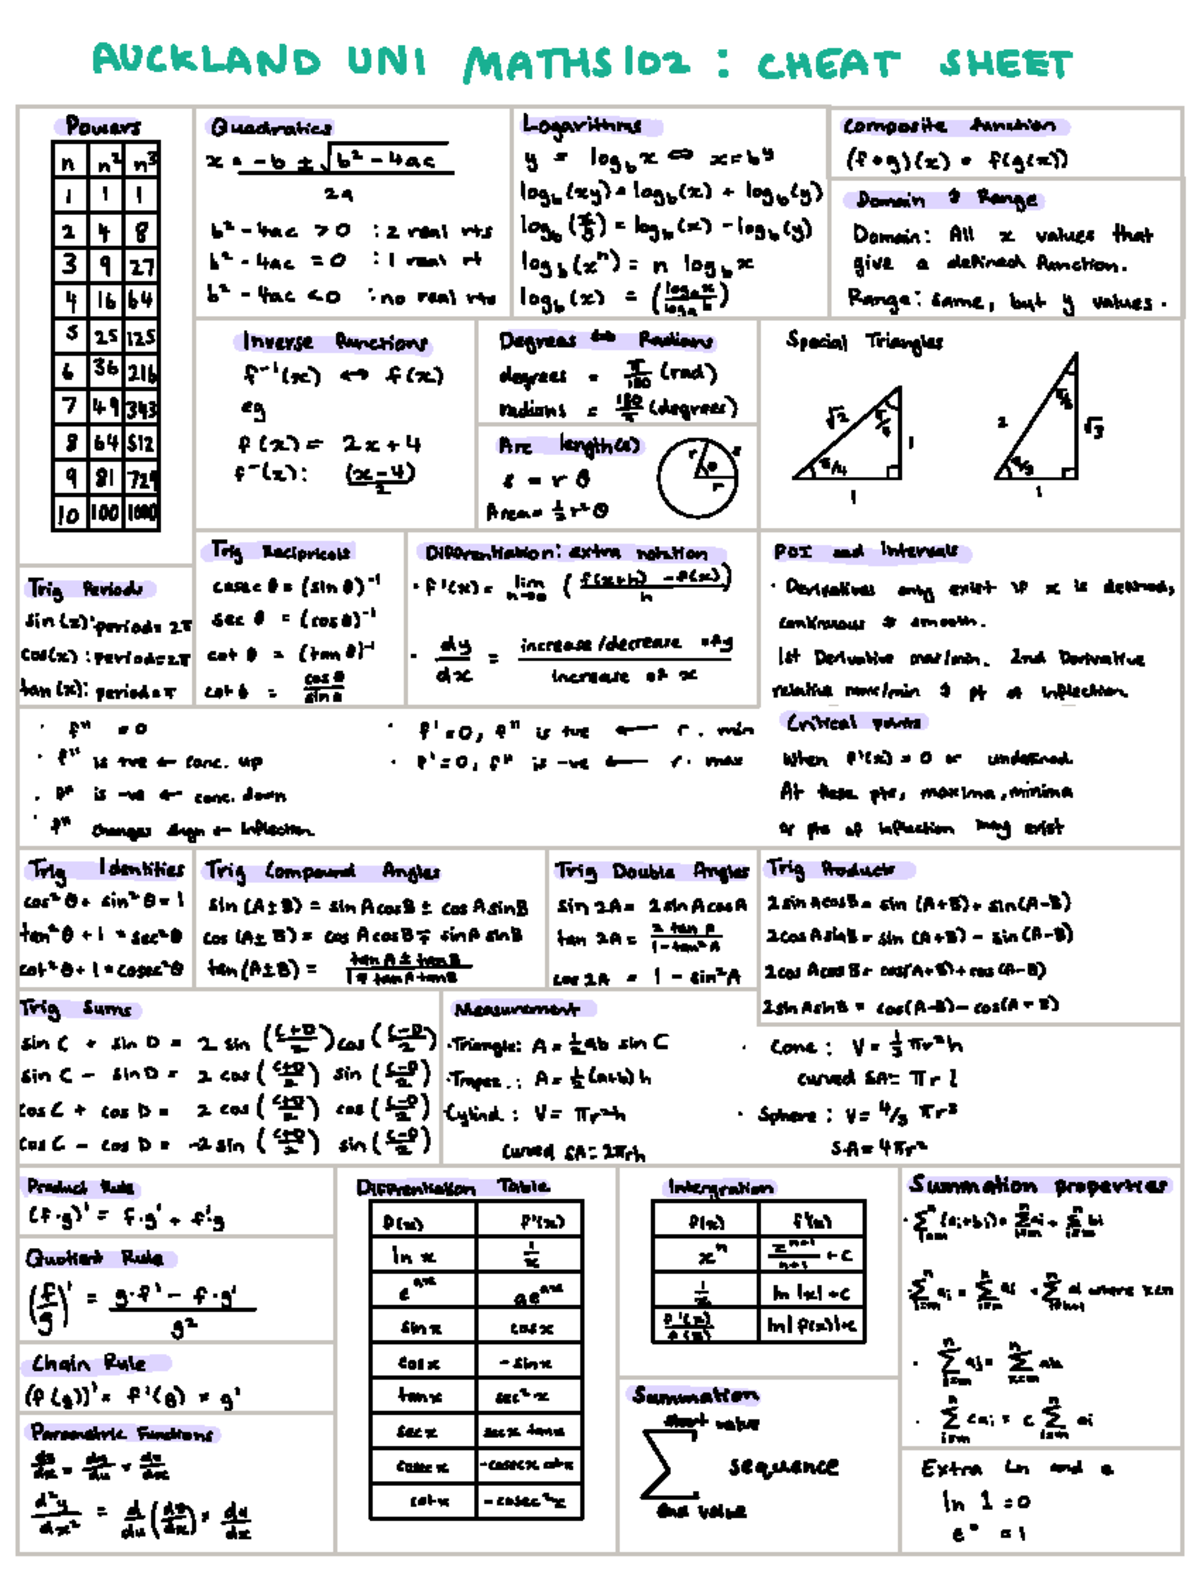 AUCKLAND UNI MATHS102 : CHEAT SHEET
Powers
n n² n³
1 1 1
2 4 8
3 9 27
4 16 64
5 25 125
6 36 216
7 49 343
8 64 512
9 81 729
10 100 1000
Quadratics
x = -b ± √b² - 4ac
2a
b² - 4ac > 0 : 2 real rts
b² - 4ac = 0 : 1 real rt
b² - 4ac < 0 : no real rts
Logarithms
y = log_b x ⇔ x = b^y
log_b (xy) = log_b (x) + log_b (y)
log_b (x/y) = log_b (x) - log_b (y)
log_b (xⁿ) = n log_b x
log_b (x) = (log_a x / log_a b)
Composite function
(f∘g)(x) = f(g(x))
Domain & Range
Domain: All x values that
give a defined function.
Range: same, but y values.
Inverse functions
f⁻¹(x) ↔ f(x)
eg
f(x) = 2x + 4
f⁻(x): (x-4)/2
Degrees ↔ Radians
degrees = π/180 (rad)
radians = 180/π (degrees)
Arc length(s)
s = r θ
Area = ½ r² θ
r s θ r
Special Triangles
√2 π/4 1 π/4 1
2 π/6 √3 π/3 1
Trig Periods
sin(x): period = 2π
cos(x): period = 2π
tan(x): period = π
Trig Recipricals
cosec θ = (sin θ)⁻¹
sec θ = (cos θ)⁻¹
cot θ = (tan θ)⁻¹
cot θ = cos θ / sin θ
Differentiation: extra notation
· f'(x) = lim h→0 (f(x+h) - f(x) / h)
· dy/dx = increase/decrease of y / increase of x
POI and Intervals
· Derivatives only exist if x is defined,
continuous & smooth.
1st Derivative max/min. 2nd Derivative
relative max/min & pt of inflection.
· f'' = 0
· f'' is +ve ← conc. up
· f'' is -ve ← conc. down
· f'' changes sign ← inflection
· f' = 0, f'' is +ve ← r. min
· f' = 0, f'' is -ve ← r. max
Critical points
When f'(x) = 0 or undefined.
At these pts, maxima, minima
or pts of inflection may exist
Trig Identities
cos²θ + sin²θ = 1
tan²θ + 1 = sec²θ
cot²θ + 1 = cosec²θ
Trig Compound Angles
sin (A ± B) = sin A cos B ± cos A sin B
cos (A ± B) = cos A cos B ∓ sin A sin B
tan (A ± B) = tan A ± tan B / 1 ∓ tan A tan B
Trig Double Angles
sin 2A = 2 sin A cos A
tan 2A = 2 tan A / 1 - tan² A
cos 2A = 1 - sin² A
Trig Products
2 sin A cos B = sin (A+B) + sin (A-B)
2 cos A sin B = sin (A+B) - sin (A-B)
2 cos A cos B = cos (A+B) + cos (A-B)
2 sin A sin B = cos (A-B) - cos (A+B)
Trig Sums
sin C + sin D = 2 sin (C+D/2) cos (C-D/2)
sin C - sin D = 2 cos (C+D/2) sin (C-D/2)
cos C + cos D = 2 cos (C+D/2) cos (C-D/2)
cos C - cos D = -2 sin (C+D/2) sin (C-D/2)
Measurement
· Triangle: A = ½ ab sin C
· Trapez.: A = ½ (a+b) h
· Cylind: V = πr²h
curved SA = 2πrh
· Cone: V = ⅓ πr²h
curved SA = π r l
· Sphere: V = 4/3 πr³
S.A = 4πr²
Product Rule
(f·g)' = f·g' + f'g
Quotient Rule
(f/g)' = g·f' - f·g' / g²
Chain Rule
(f(g))' = f'(g) × g'
Parametric Functions
dy/dx = dy/du × du/dx
d²y/dx² = d/du (dy/dx) × du/dx
Diffrentiation Table
f(x) f'(x)
ln x 1/x
e^ax ae^ax
sin x cos x
cos x - sin x
tan x sec² x
sec x sec x tan x
cosec x - cosec x cot x
cot x - cosec² x
Intergration
f(x) f'(x)
xⁿ xⁿ⁺¹/n+1 + C
1/x ln |x| + C
f'(x)/f(x) ln |f(x)| + C
Summation
start value
∑ sequence
end value
Summation properties
· ∑ (ai + bi) = ∑ ai + ∑ bi
· ∑ ai = ∑ ai + ∑ ai where k<n
· ∑ ai = ∑ ak
· ∑ c ai = c ∑ ai
Extra Ln and e
ln 1 = 0
e⁰ = 1